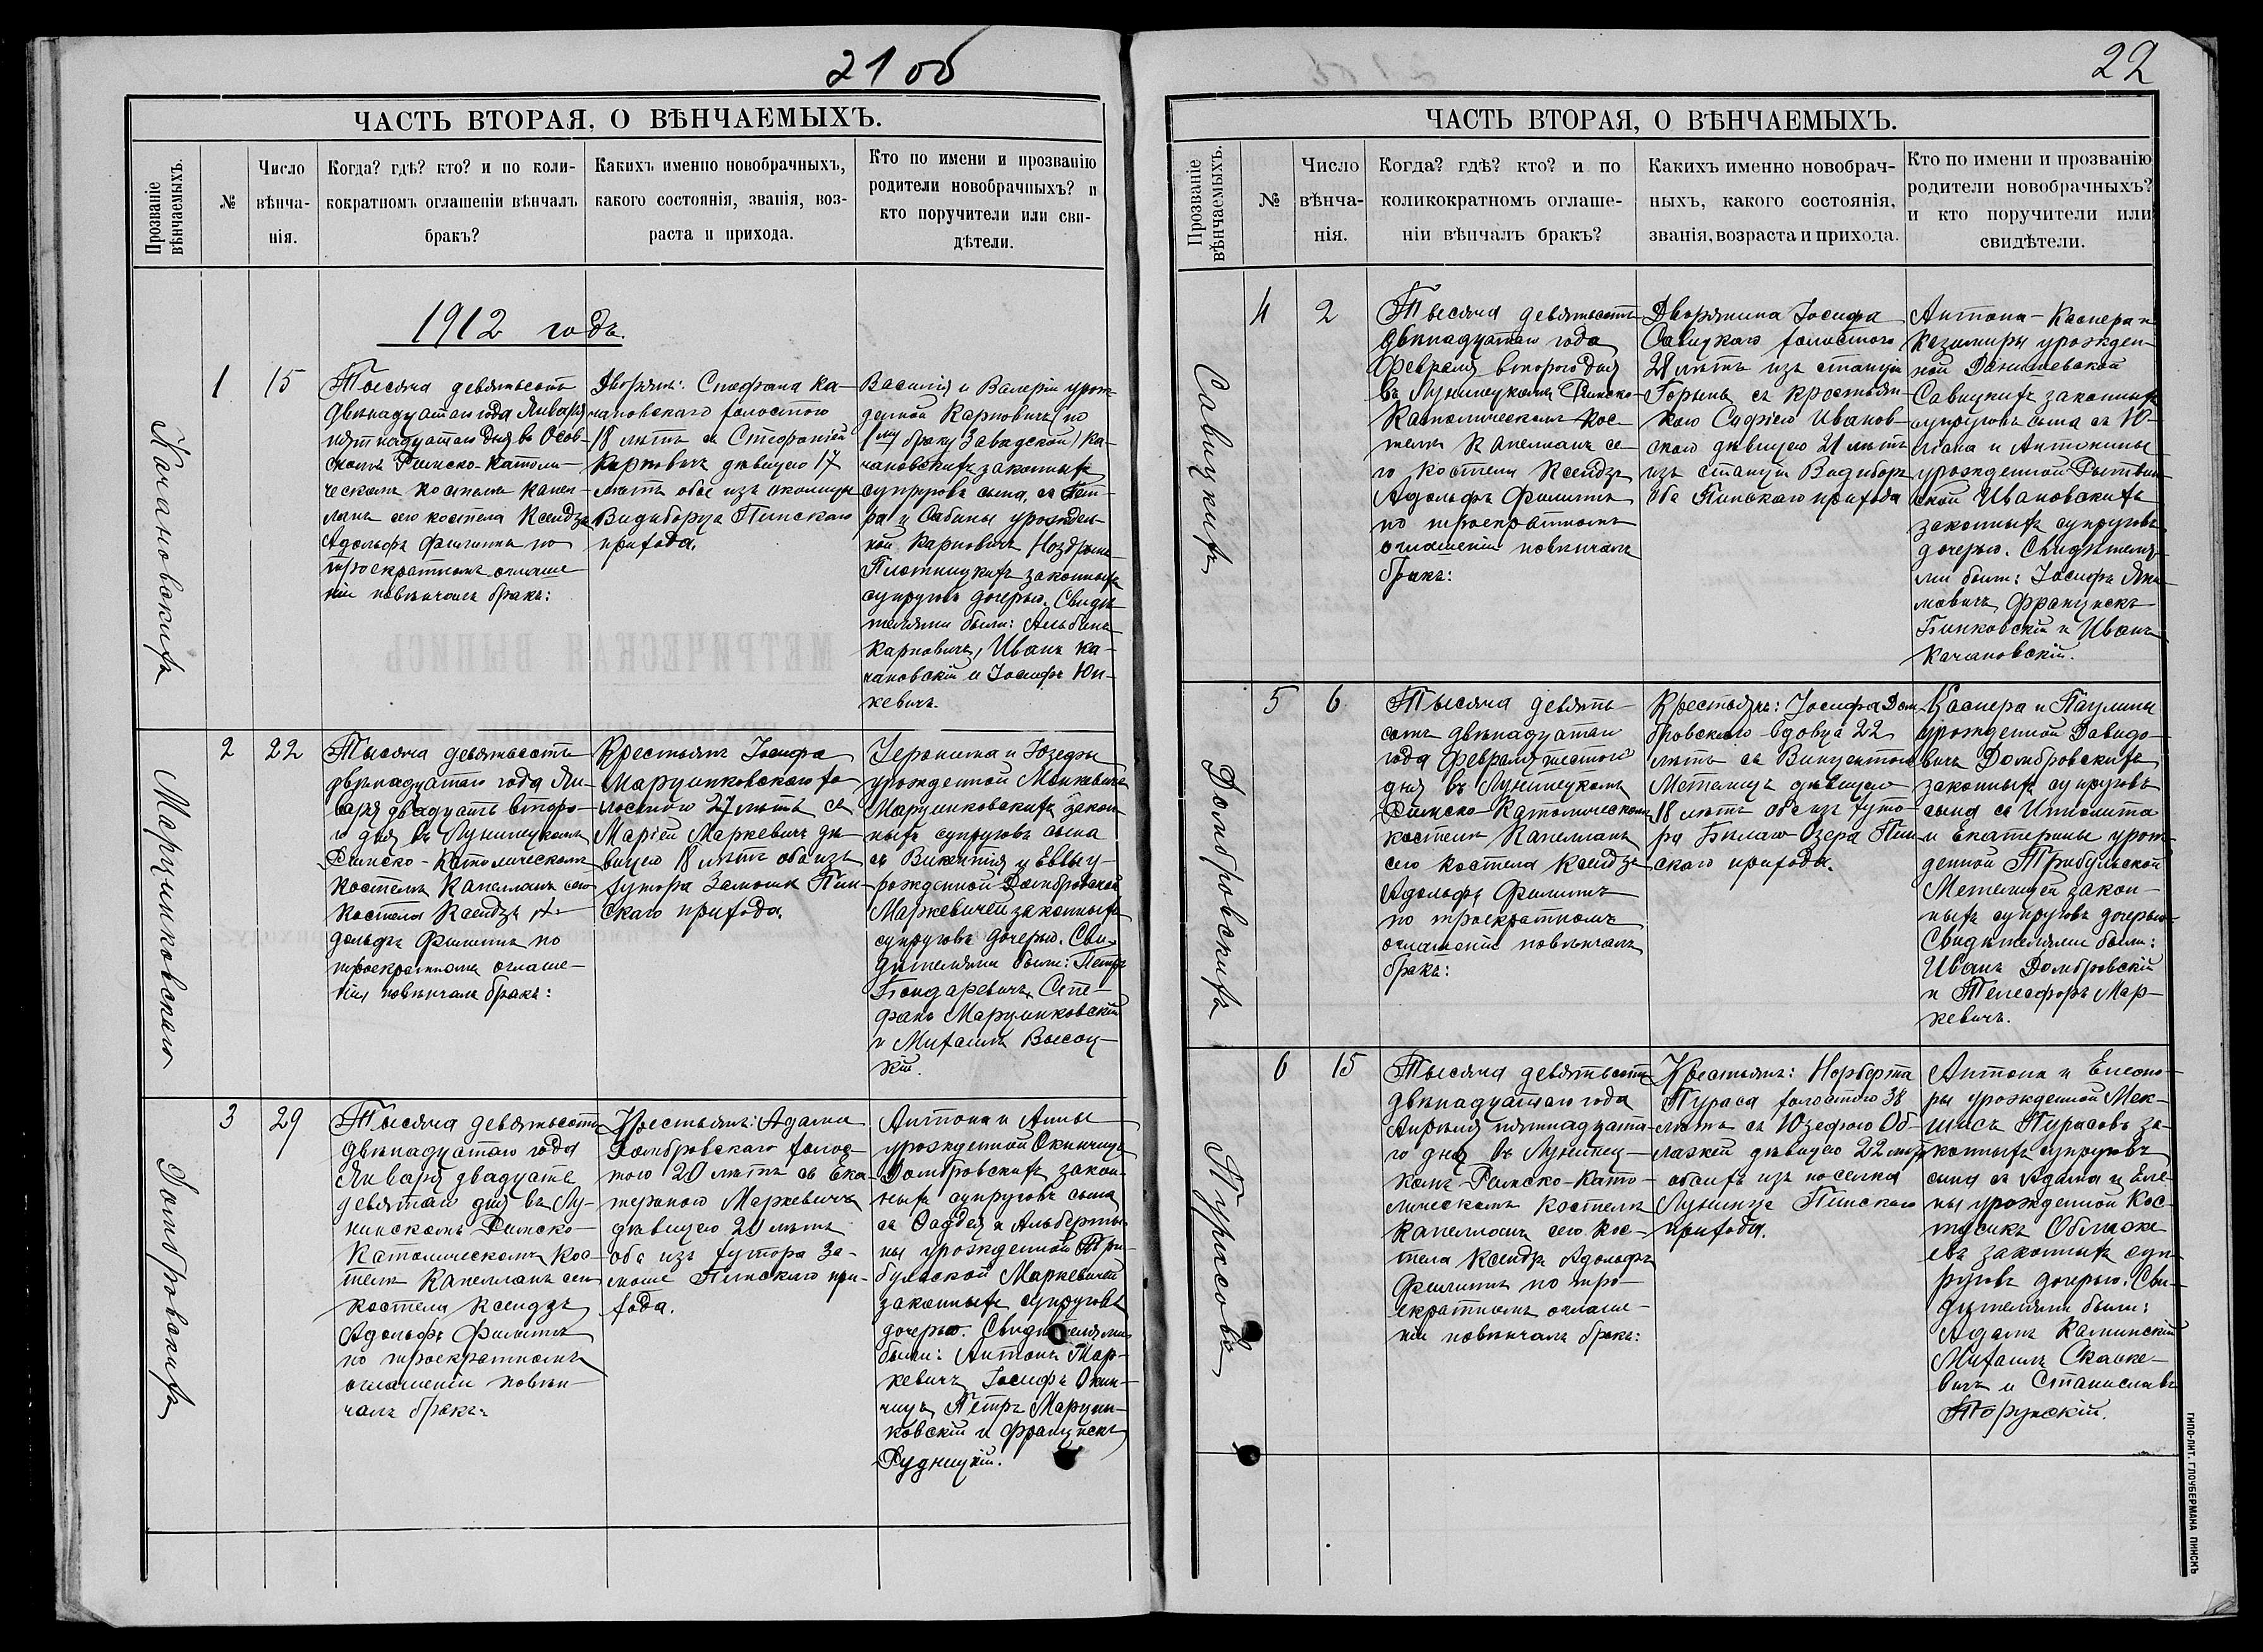 21 об
ЧАСТЬ ВТОРАЯ, О ВѢНЧАЕМЫХЪ.
Прозваніе
вѣнчаемыхъ.
№
Число
вѣнча-
нія.
Когда? гдѣ? кто? и по коли-
кократномъ оглашеніи вѣнчалъ
бракъ?
Какихъ именно новобрачныхъ,
какого состоянія, званія, воз-
раста и прихода.
Кто по имени и прозванію
родители новобрачныхъ? и
кто поручители или сви-
дѣтели.
1912 годъ.
Качановскихъ
1
15
Тысяча девятьсотъ
двѣнадцатаго года Января
пятнадцатаго дня въ Осов-
скомъ Римско-Католи-
ческомъ костелѣ капел-
ланъ сего костела Ксендзъ
Адольфъ Филиппъ по
троекратномъ оглаше-
ніи повѣнчалъ бракъ:
Дворянъ: Стефана Ка-
чановскаго холостого
18 лѣтъ съ Стефаніей
Карповичъ дѣвицею 17
лѣтъ обое изъ околицы
Видиборца Пинскаго
прихода.
Василія и Валеріи урож-
денной Карповичъ (по
1му браку Завадской) Ка-
чановскихъ законныхъ
супруговъ сына, съ Пет-
ра и Сабины урожден-
ной Карповичъ Ноздрынъ-
Плотницкихъ законныхъ
супруговъ дочерью. Свидѣ-
телями были: Альбинъ
Карповичъ, Иванъ Ка-
чановскій и Іосифъ Юш-
кевичъ.
Марцинковскаго
2
22
Тысяча девятьсотъ
двѣнадцатаго года Ян-
варя двадцать второ-
го дня въ Лунинецкомъ
Римско-Католическомъ
Костелѣ Капелланъ сего
Костела Ксендзъ А-
дольфъ Филиппъ по
троекратномъ оглаше-
ніи повѣнчалъ бракъ:
Крестьянъ Іосифа
Марцинковскаго хо-
лостого 27 лѣтъ съ
Маріей Маркевичъ дѣ-
вицею 18 лѣтъ оба изъ
хутора Замошье Пин-
скаго прихода.
Іеронима и Юзефы
урожденной Монкевичъ
Марцинковскихъ закон-
ныхъ супруговъ сына
съ Викентія и Еввы у-
рожденной Домбровской
Маркевичей законныхъ
супруговъ дочерью. Сви-
дѣтелями были: Петръ
Бондаревичъ, Сте-
фанъ Марцинковскій
и Михаилъ Высоц-
кій.
Домбровскихъ
3
29
Тысяча девятьсотъ
двѣнадцатаго года
Января двадцать
девятаго дня въ Лу-
нинскомъ Римско-
Католическомъ Кос-
телѣ Капелланъ сего
Костела Ксендзъ
Адольфъ Филиппъ
по троекратномъ
оглашеніи повѣн-
чалъ бракъ:
Крестьянъ: Адама
Домбровскаго холос-
того 20 лѣтъ съ Ека-
териною Маркевичъ
дѣвицею 20 лѣтъ
оба изъ хутора За-
мошье Пинскаго при-
хода.
Антона и Анны
урожденной Окинчицъ
Домбровскихъ закон-
ныхъ супруговъ сына
съ Фаддея и Альберты-
ны урожденной Три-
бульской Маркевичей
законныхъ супруговъ
дочерью. Свидѣтелями
были: Антонъ Мар-
кевичъ, Іосифъ Окин-
чицъ, Петръ Марцин-
ковскій и Францискъ
Рудницкій.
22
ЧАСТЬ ВТОРАЯ, О ВѢНЧАЕМЫХЪ.
Прозваніе
вѣнчаемыхъ.
№
Число
вѣнча-
нія.
Когда? гдѣ? кто? и по
коликократномъ оглаше-
ніи вѣнчалъ бракъ?
Какихъ именно новобрач-
ныхъ, какого состоянія,
званія, возраста и прихода.
Кто по имени и прозванію
родители новобрачныхъ?
и кто поручители или
свидѣтели.
Савицкихъ
4
2
Тысяча девятьсотъ
двѣнадцатаго года
Февраля второго дня
въ Лунинецкомъ Римско-
Католическомъ Кос-
телѣ Капелланъ се-
го костела Ксендзъ
Адольфъ Филиппъ
по троекратномъ
оглашеніи повѣнчалъ
бракъ:
Дворянина Іосифа
Савицкаго холостого
28 лѣтъ изъ станціи
Горынь съ крестьян-
кою Софіею Иванов-
скою дѣвицею 21 лѣтъ
изъ станціи Видиборъ
оба Пинскаго прихода
Антона-Каспера и
Казиміры урожден-
ной Данишевской
Савицкихъ законныхъ
супруговъ сына съ Ю-
ліана и Антонины
урожденной
Ивановскихъ
законныхъ супруговъ
дочерью. Свидѣтеля-
ми были: Іосифъ
Францискъ
Бинковскій и Иванъ
Качановскій.
Домбровскихъ
5
6
Тысяча девять-
сотъ двѣнадцатаго
года Февраля шестого
дня въ Лунинецкомъ
Римско-Католическомъ
костелѣ Капелланъ
сего костела Ксендзъ
Адольфъ Филиппъ
по троекратномъ
оглашеніи повѣнчалъ
бракъ:
Крестьянъ: Іосифа Дом-
бровскаго вдовца 22
лѣтъ съ Винцентою
Метелицъ дѣвицею
18 лѣтъ оба изъ хуто-
ра Бѣлаго Озера Пин-
скаго прихода.
Каспера и Паулины
урожденной Давидо-
вичъ Домбровскихъ
законныхъ супруговъ
сына съ Ипполита
и Екатерины урож-
денной Трибульской
Метелицей закон-
ныхъ супруговъ дочерью
Свидѣтелями были:
Иванъ Домбровскій
и Телесфоръ Мар-
кевичъ.
Пурасовъ
6
15
Тысяча девятьсотъ
двѣнадцатаго года
Апрѣля пятнадцата-
го дня въ Лунинец-
комъ Римско-Като-
лическомъ Костелѣ
Капелланъ сего Кос-
тела Ксендзъ Адольфъ
Филиппъ по тро-
екратномъ оглаше-
ніи повѣнчалъ бракъ:
Крестьянъ: Норберта
Пураса холостого 38
лѣтъ съ Юзефою Об-
лажей дѣвицею 22 лѣтъ
обоихъ изъ поселка
Лунинца Пинскаго
прихода.
Антона и Елеоно-
ры урожденной Мек-
шисъ Пурасовъ за-
конныхъ супруговъ
сына съ Адама и Еле-
ны урожденной Кос-
тусикъ
законныхъ суп-
руговъ дочерью. Сви-
дѣтелями были:
Адамъ Каминскій
Михаилъ Сканке-
вичъ и Станиславъ
Торунскій.
ТИПО-ЛИТ. ГЛОУБЕРМАНА ПИНСКЪ